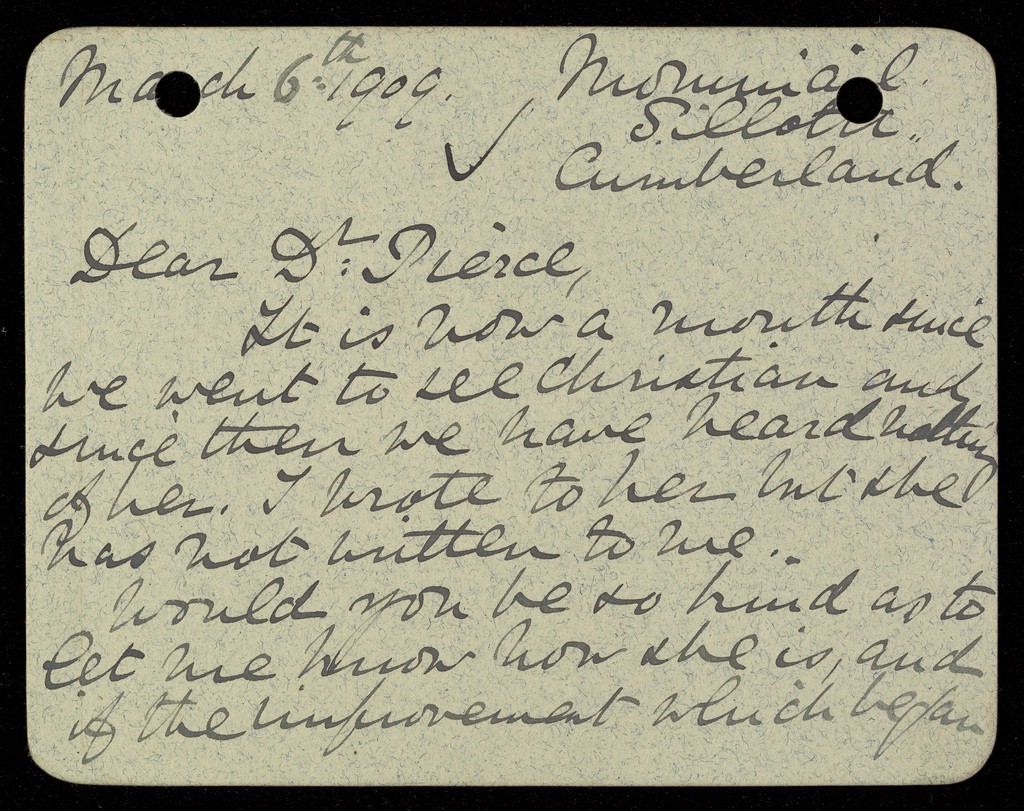 March 6th 1909.
Silloth,
Cumberland.
Dear Dr. Pierce,
It is now a month since
we went to see Christian and
since then we have heard nothing
of her. I wrote to her but she
has not written to me.
Would you be so kind as to
let me know how she is, and
if the improvement which began